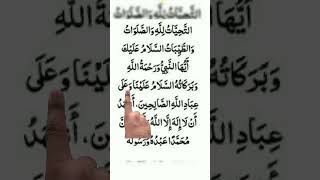 التَّحِيَّاتُ لِلَّهِ وَالصَّلَوَاتُ
التَّحِيَّاتُ لِلَّهِ وَالصَّلَوَاتُ
وَالطَّيِّبَاتُ السَّلَامُ عَلَيْكَ
أَيُّهَا النَّبِيُّ وَرَحْمَةُ اللَّهِ
وَبَرَكَاتُهُ السَّلَامُ عَلَيْنَا وَعَلَى
عِبَادِ اللَّهِ الصَّالِحِينَ،
أَنْ لَا إِلَهَ إِلَّا اللَّهُ
مُحَمَّدًا عَبْدُهُ وَرَسُولُهُ